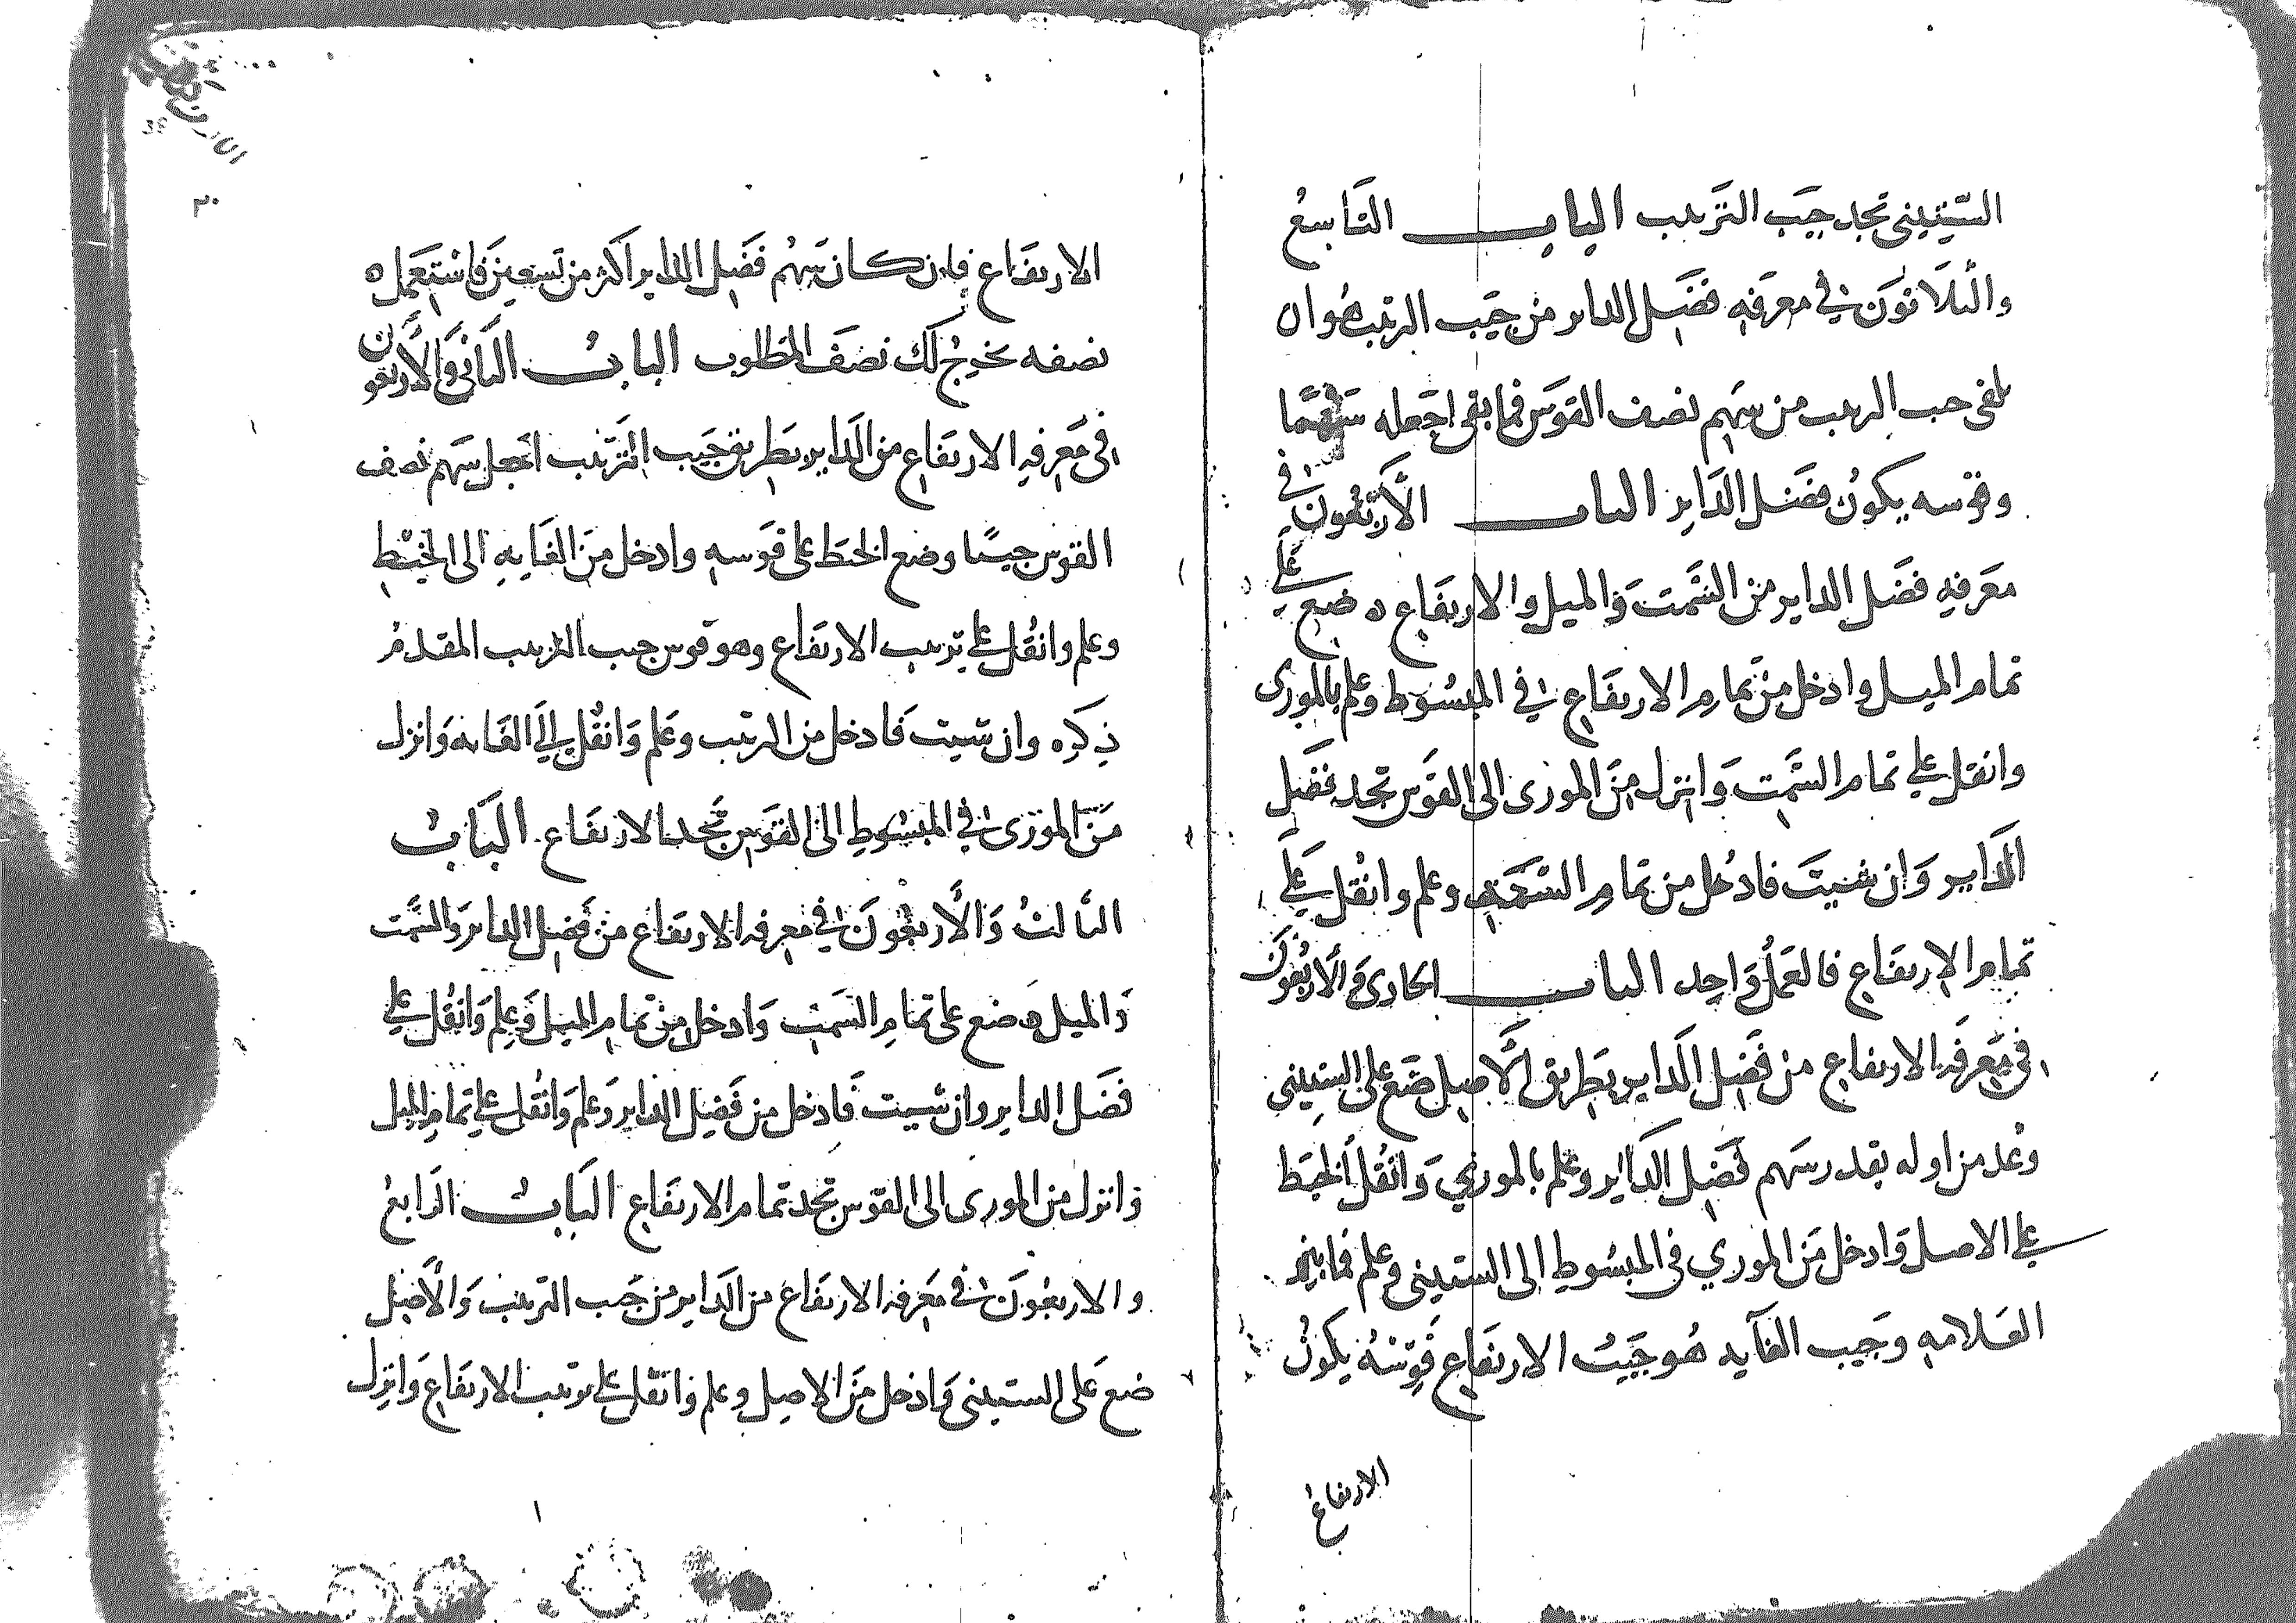 الستيني تجد جيب الترتيب الباب التاسع
والثلاثون في معرفه فضل الداير من جيب الترتيب هو ان
تلقى جيب الترتيب من سهم نصف القوس فما بقى اجعله سهما
وقوسه يكون فضل الداير الباب الأربعون في
معرفه فضل الداير من السمت والميل والارتفاع ه ضع على
تمام الميل وادخل من تمام الارتفاع في المبسوط وعلم بالموري
وانقل على تمام السمت وانزل من الموري الى القوس تجد فضل
الداير وان شيت فادخل من تمام السمت وعلم وانقل على
تمام الارتفاع فالعمل واحد الباب الحادي والأربعون
في معرفه الارتفاع من فضل الداير بطريق الأصل ضع على الستيني
وعد من اوله بقدر سهم فضل الداير وعلم بالموري وانقل الخيط
على الاصل وادخل من الموري في المبسوط الى الستيني وعلم فما بين
العلامه وجيب الغايه هو جيب الارتفاع قوسه يكون
الارتفاع
٣٠
الارتفاع فان كان سهم فضل الداير اكثر من تسعين فاستعمل ه
نصفه يخرج لك نصف المطلوب الباب الثاني والأربعون
في معرفه الارتفاع من الداير بطريق جيب الترتيب اجعل سهم نصف
القوس جيبا وضع الخيط على قوسه وادخل من الغايه الى الخيط
وعلم وانقل على ترتيب الارتفاع وهو قوس جيب الترتيب المقدم
ذكره وان شيت فادخل من الترتيب وعلم وانقل الى الغايه وانزل
من الموري في المبسوط الى القوس تجد الارتفاع الباب
الثالث والأربعون في معرفه الارتفاع من فضل الداير والسمت
والميل ه ضع على تمام السمت وادخل من تمام الميل وعلم وانقل على
فضل الداير وان شيت فادخل من فضل الداير وعلم وانقل على تمام الميل
وانزل من الموري الى القوس تجد تمام الارتفاع الباب الرابع
والاربعون في معرفه الارتفاع من الداير من جيب الترتيب والأصل
ضع على الستيني وادخل من الاصل وعلم وانقل على ترتيب الارتفاع وانزل